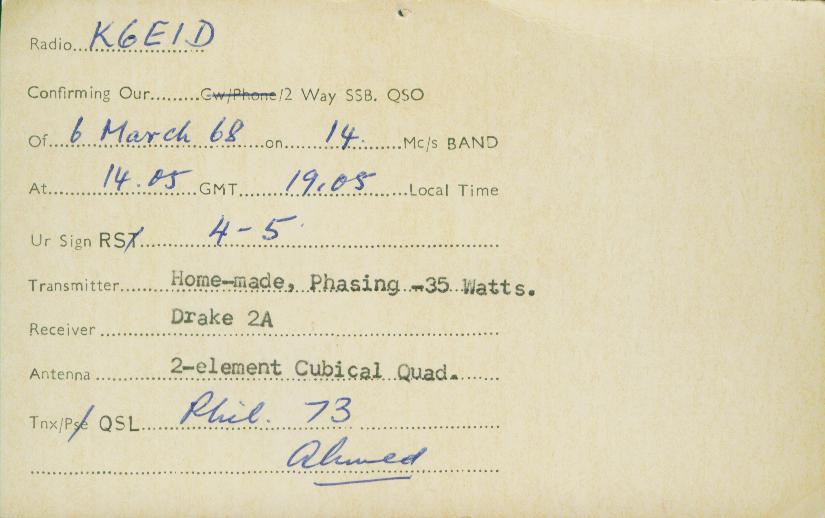 Radio...K6EID
Confirming Our.........Cw/Phone/2 Way SSB. QSO
Of...6 March 68...on...14...Mc/s BAND
At...14.05...GMT...19.05...Local Time
Ur Sign RST...4-5
Transmitter...Home-made, Phasing -35 Watts.
Receiver...Drake 2A
Antenna...2-element Cubical Quad.
Tnx/Pse QSL...Phil. 73
Ahmed